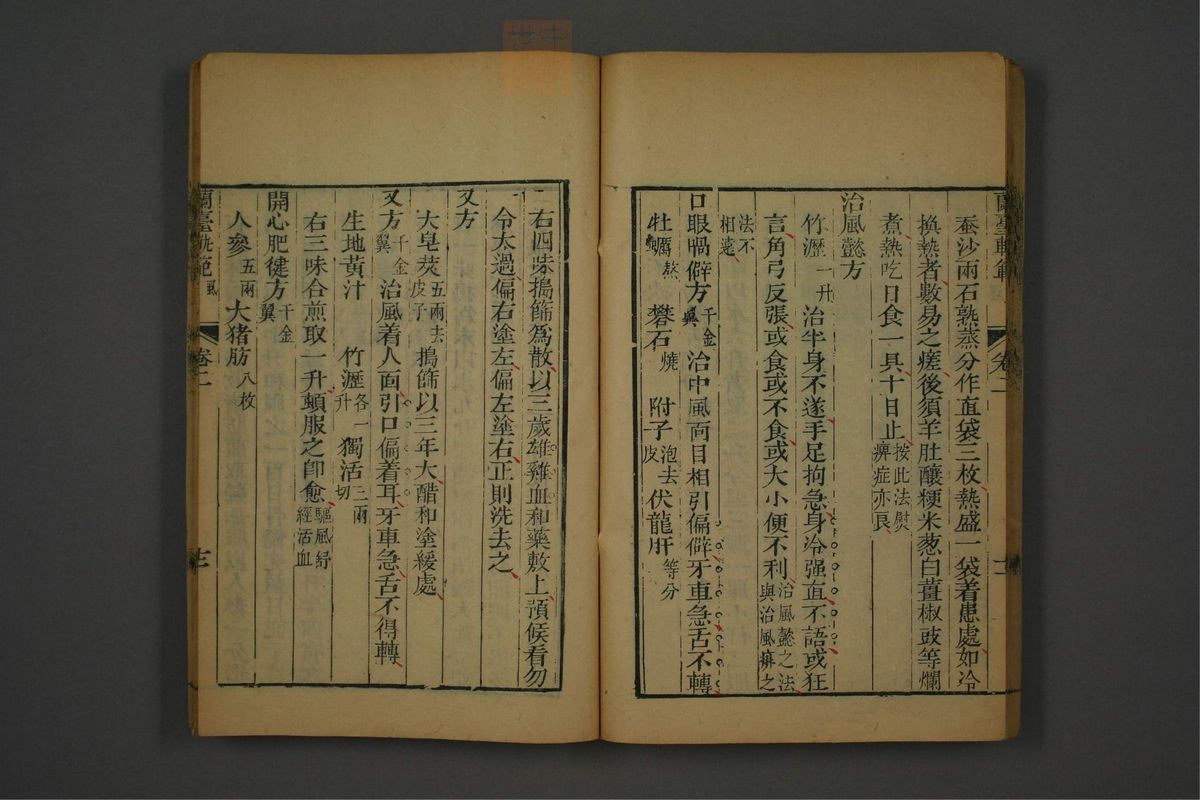 蘭臺軌範 卷二
蚕沙兩石熟蒸分作直袋三枚熱盛一袋着患處如冷
換熱者數易之瘥後須羊肚釀粳米葱白薑椒豉等爛
煮熱吃日食一具十日止 按此法熨痹症亦良
治風懿方
竹瀝 一升 治半身不遂手足拘急身冷强直不語或狂
言角弓反張或食或不食或大小便不利 治風懿之法與治風痱之
法不相遠
口眼喎僻方 千金翼 治中風面目相引偏僻牙車急舌不轉
牡蠣 熬 礬石 燒 附子 泡去皮 伏龍肝 等分
右四味搗篩為散以三歲雄雞血和藥敷上預候看勿
令太過偏右塗左偏左塗右正則洗去之
又方
大皂莢 五兩去皮子 搗篩以三年大醋和塗緩處
又方 千金翼 治風着人面引口偏着耳牙車急舌不得轉
生地黃汁 竹瀝 各一升 獨活 三兩切
右三味合煎取一升頓服之卽愈 驅風舒經活血
開心肥健方 千金翼
人參 五兩 大猪肪 八枚
蘭臺軌範 風 卷二